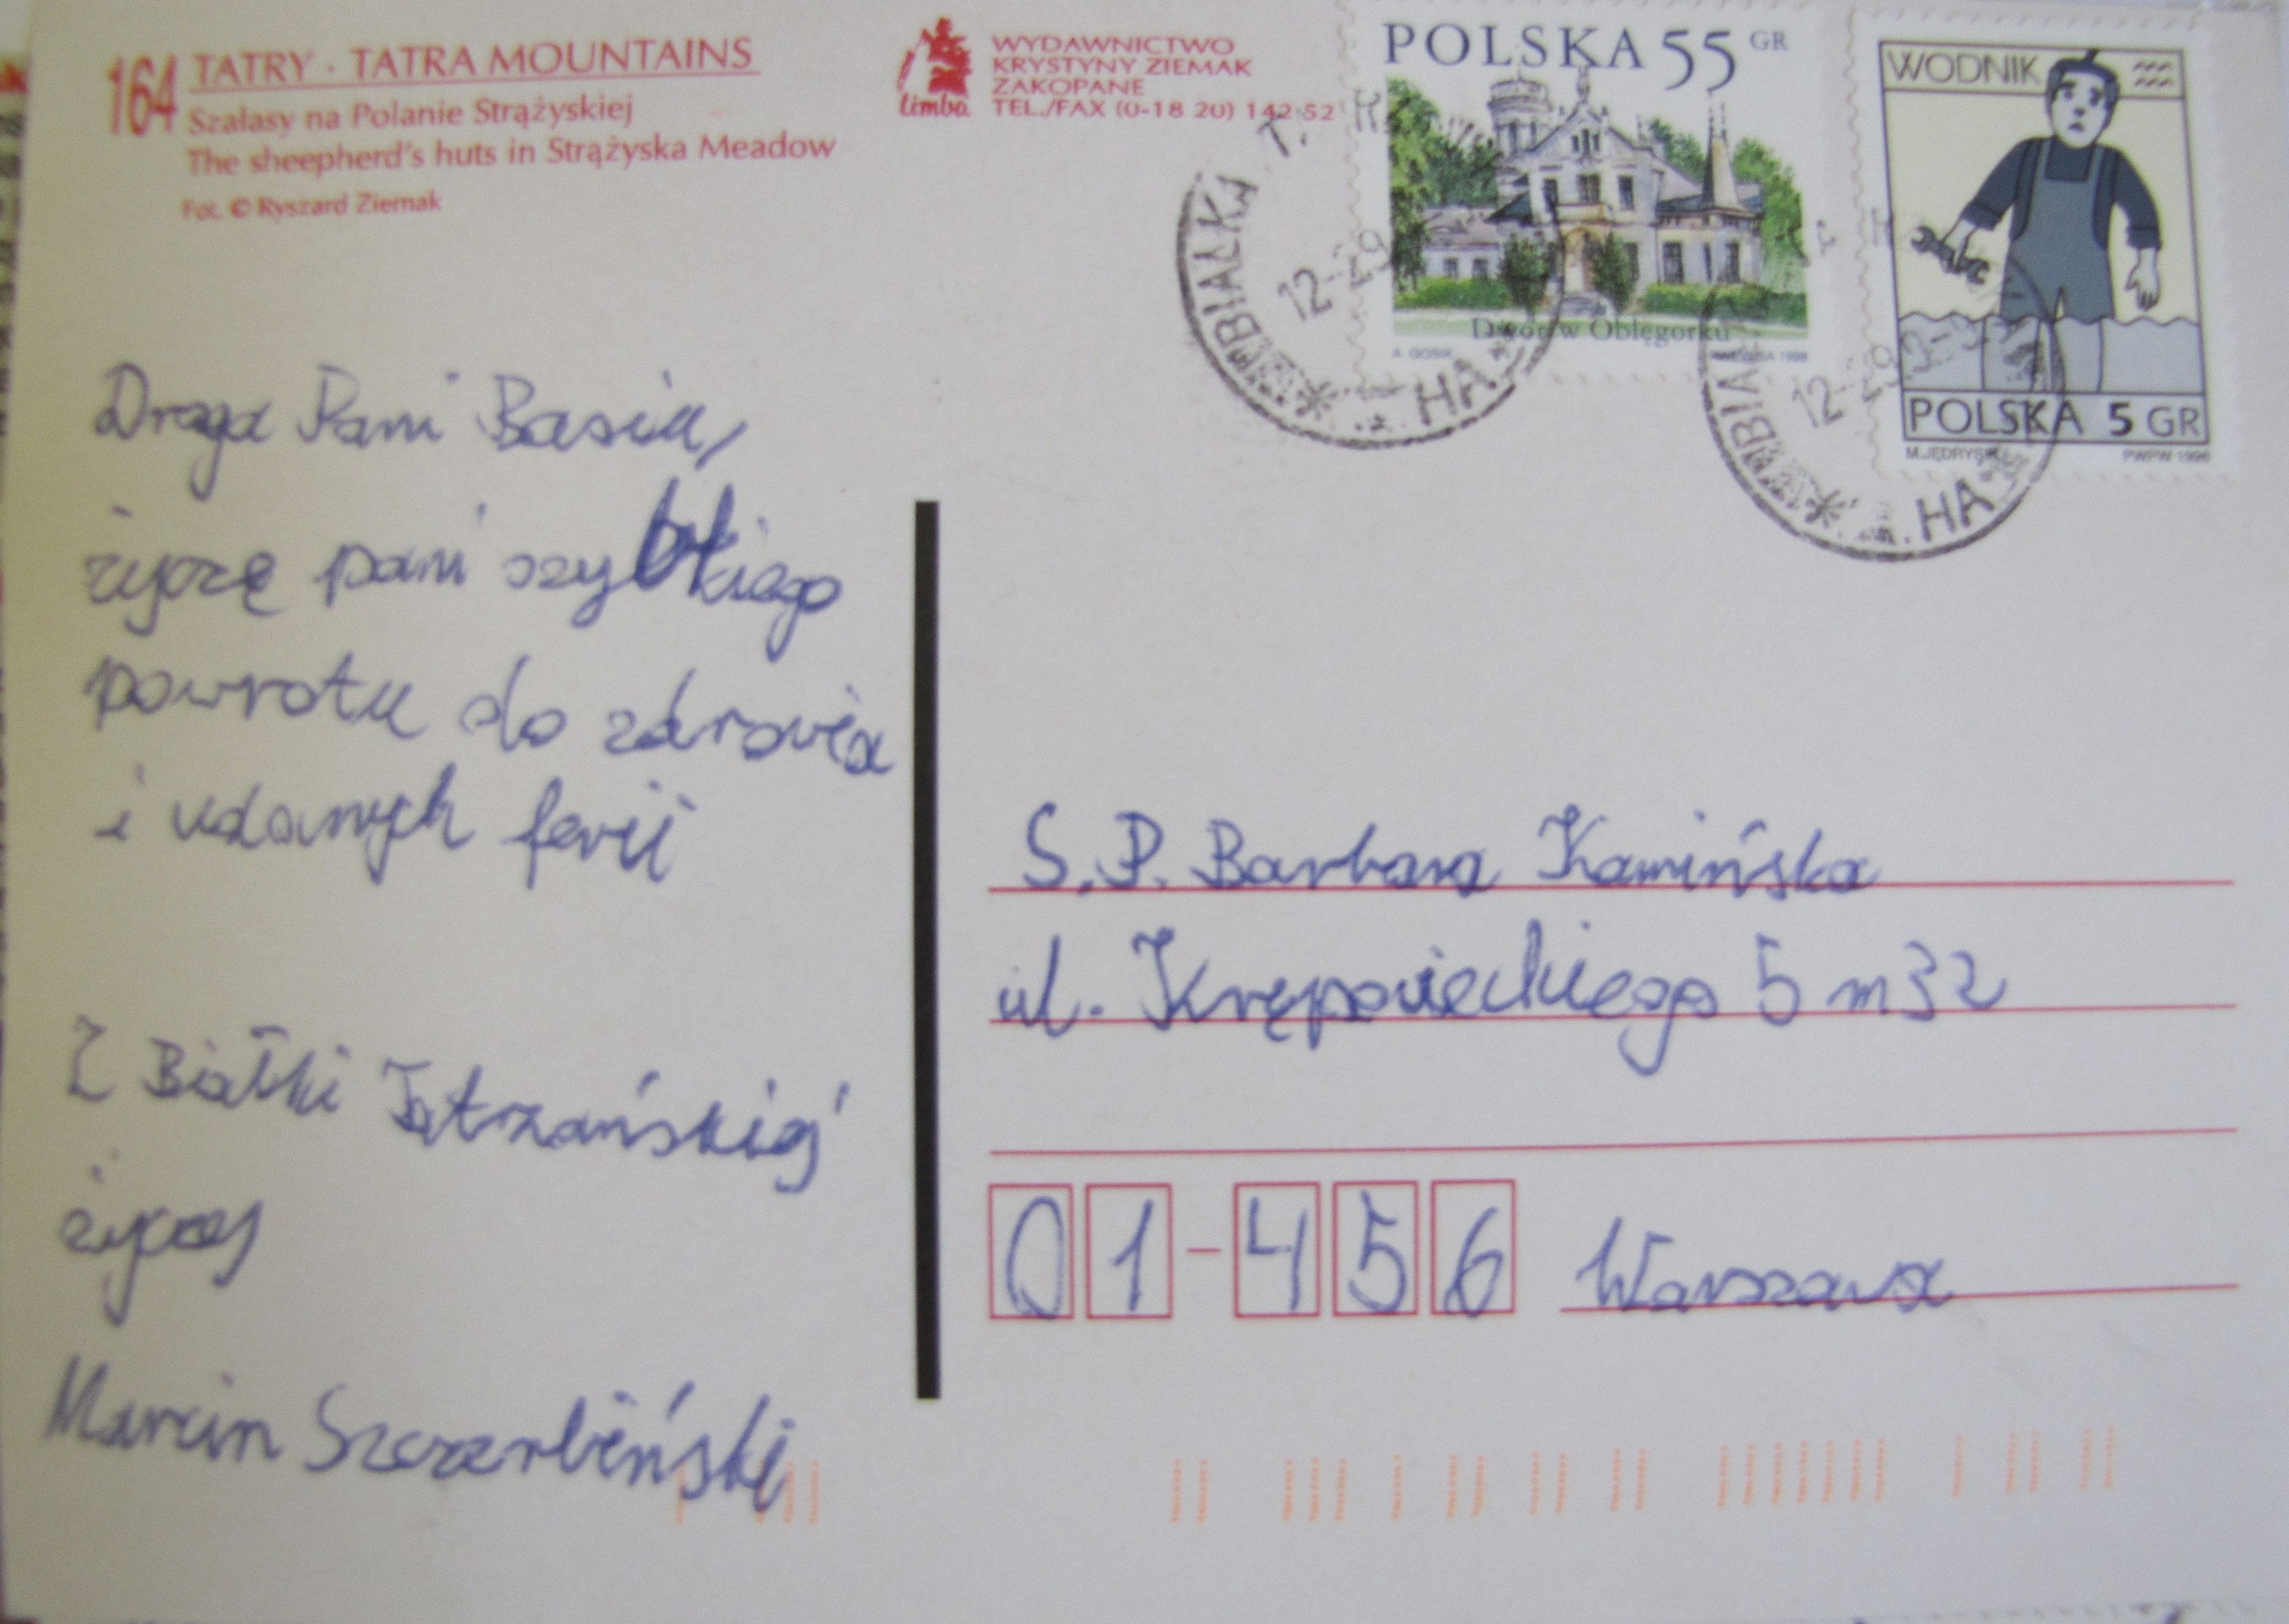 164 TATRY · TATRA MOUNTAINS
Szałasy na Polanie Strążyskiej
The sheepherd's huts in Strążyska Meadow
Fot. © Ryszard Ziemak
limba
WYDAWNICTWO
KRYSTYNY ZIEMAK
ZAKOPANE
TEL./FAX (0-18 20) 142 52
POLSKA 55 GR
Dwór w Oblęgorku
1998
WODNIK
POLSKA 5 GR
PWPW 1996
BIAŁKA T.
12-
HA
BIA
12-
HA
Droga Pani Basiu,
życzę pani szybkiego
powrotu do zdrowia
i udanych ferii
Z Białki Tatrzańskiej
życzy
Marcin Szczerbiński
S.P. Barbara Kamińska
ul. Krępowieckiego 5 m 32
01-456 Warszawa